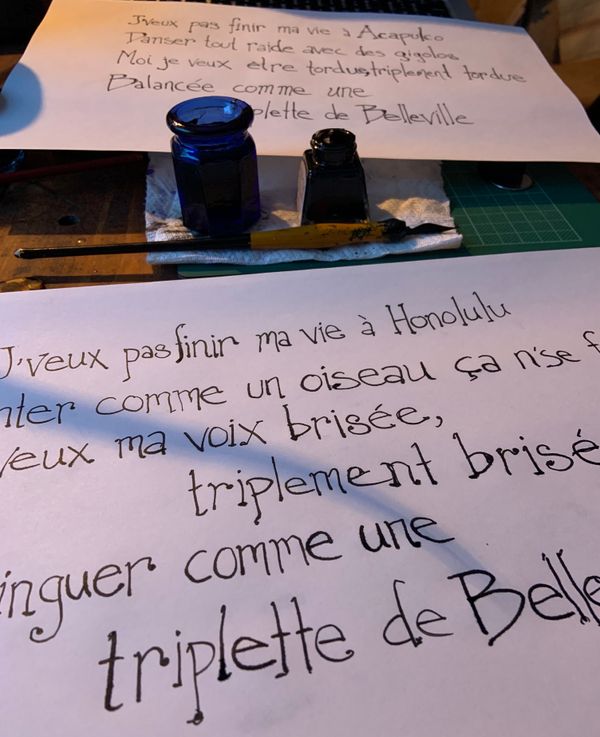 J'veux pas finir ma vie à Acapulco
Danser tout raide avec des gigolos
Moi je veux etre tordustriplement tordue
Balancée comme une
plette de Belleville
J'veux pas finir ma vie à Honolulu
nter comme un oiseau ça n'se f
veux ma voix brisée,
triplement brisé
inguer comme une
triplette de Belle